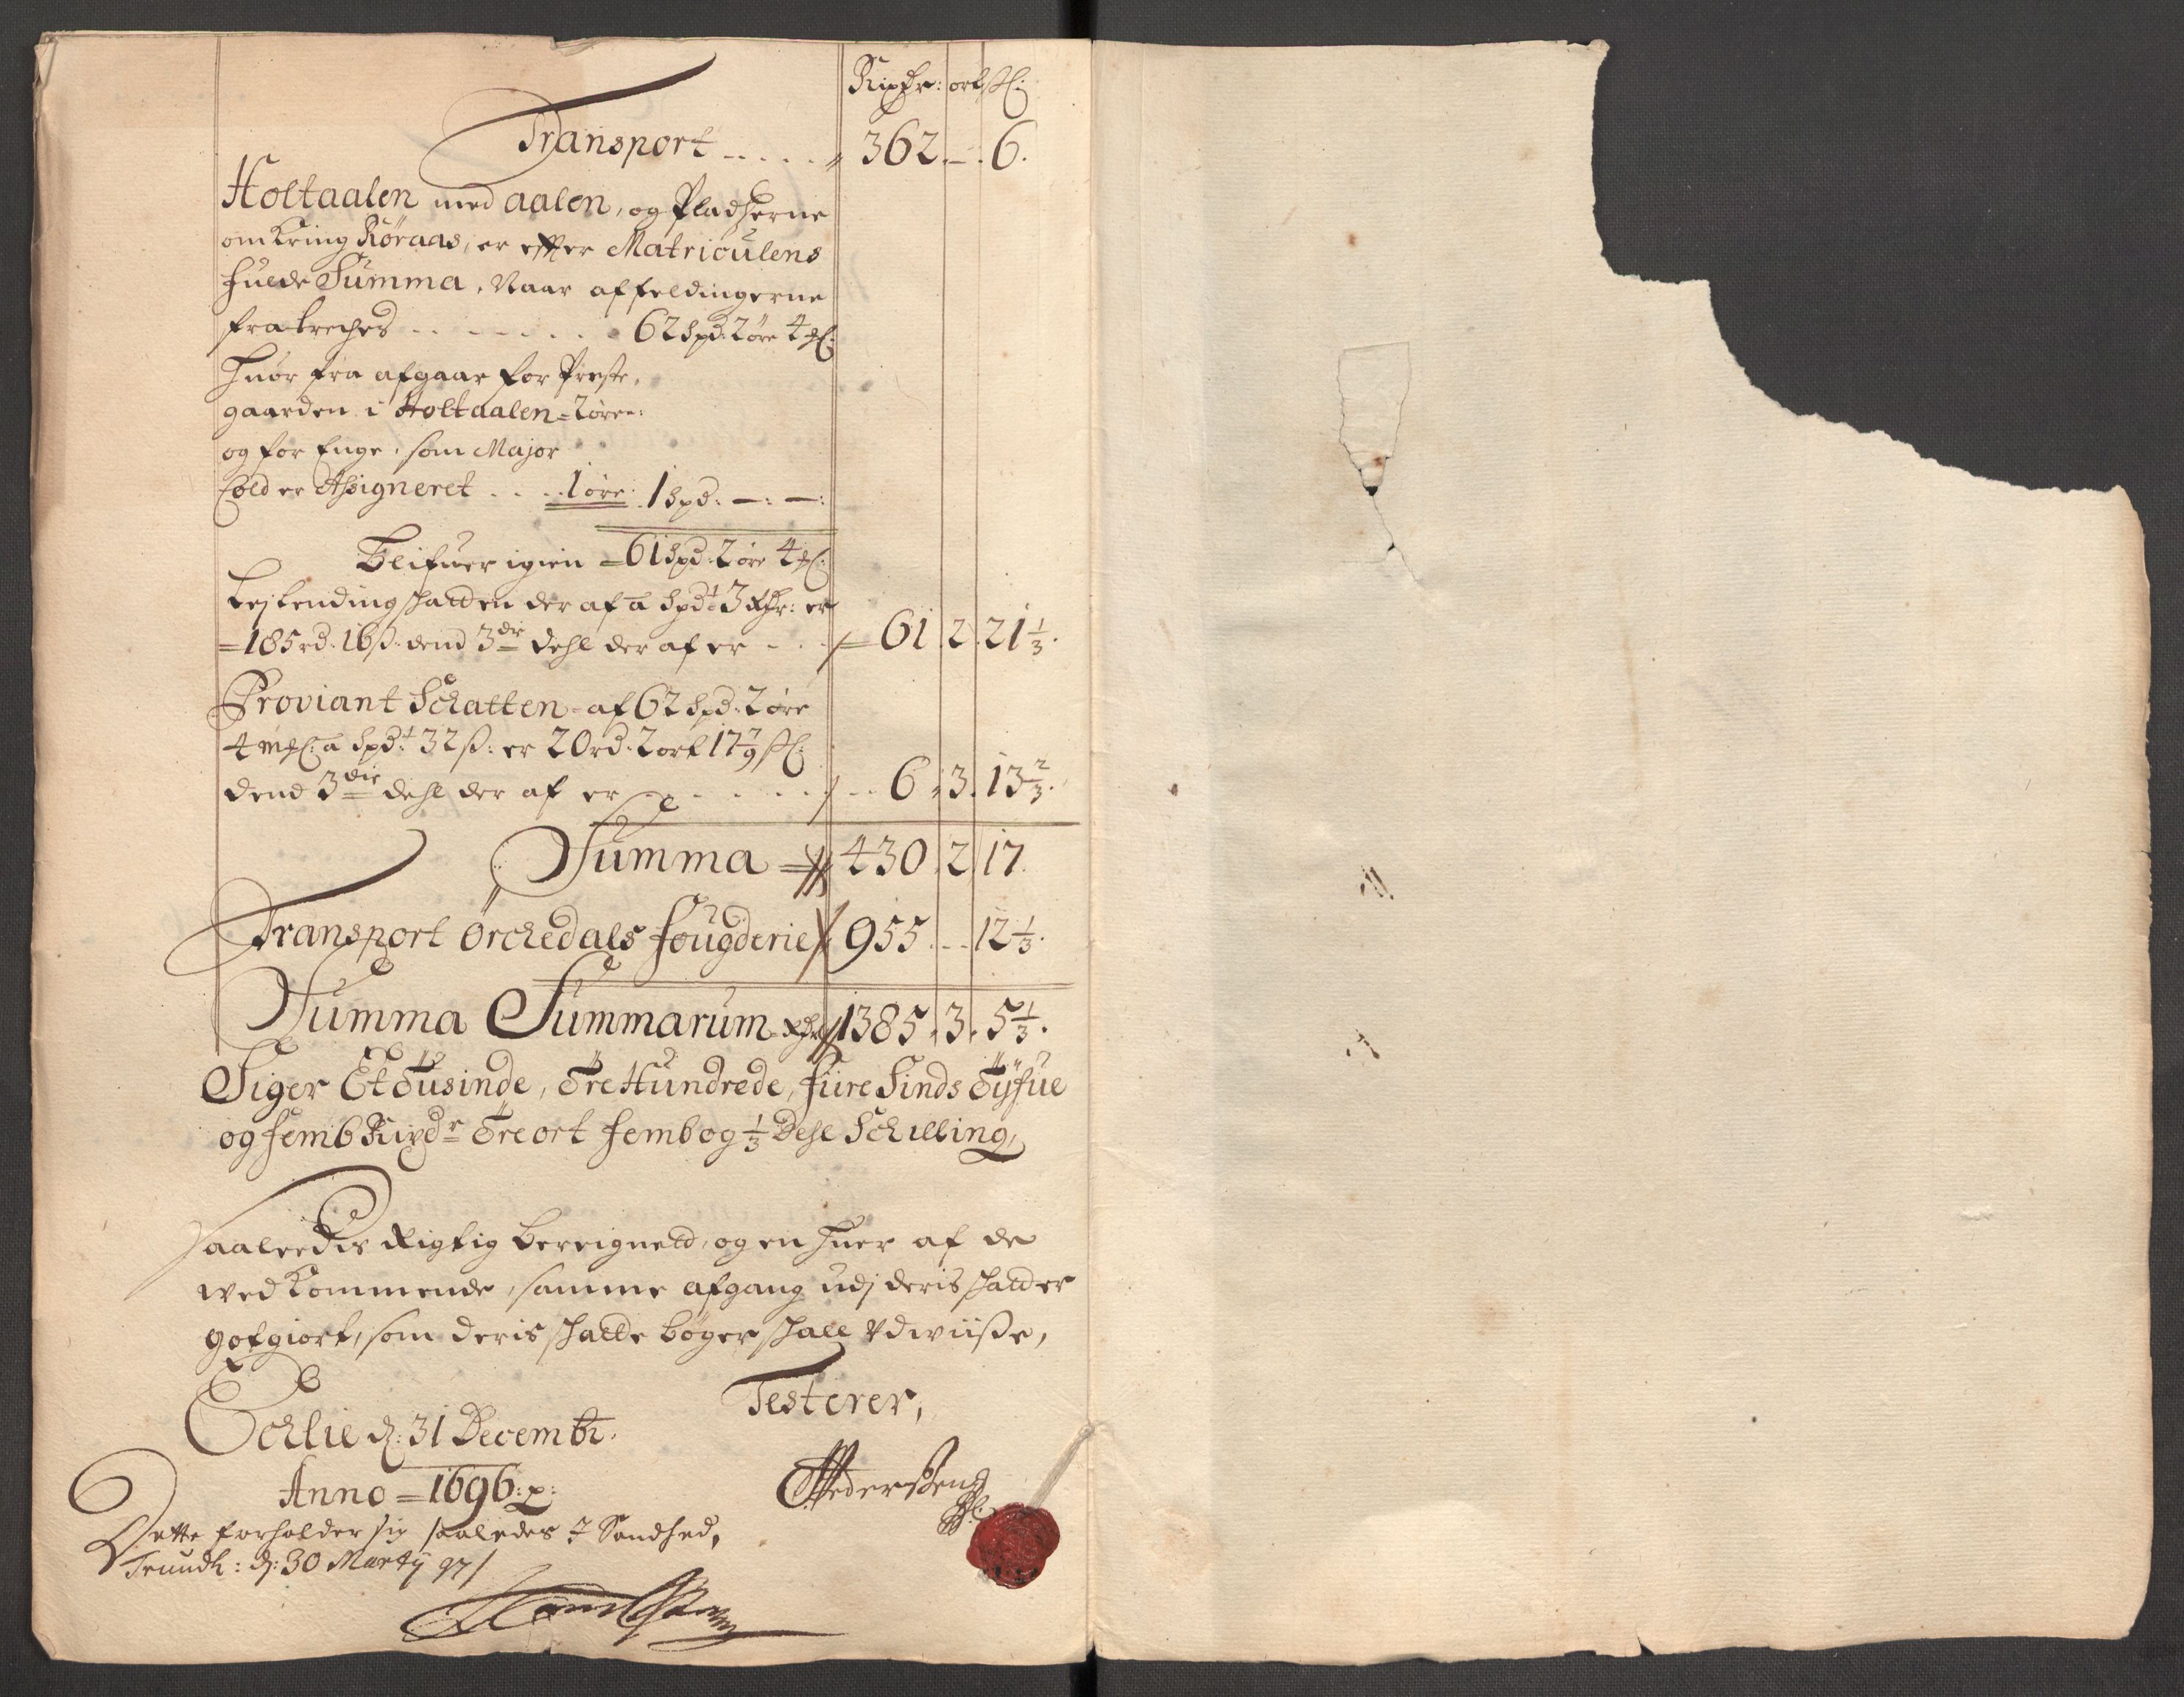 Rixdr: ort ſſ:
Transport - - - - 362. — . 6.
Holtaalen med aalen, og Pladserne
omkring Røraas, er efter Matriculens
fulde Summa, Naar affeldingerne
fratreches - - - - - - 62 Spd: 2 øre 4 mꝶ:
huor fra afgaar for Preste,
gaarden i Holtaalen = 2 øre:
og for Enge, som Major
Cold er Assigneret - - - 1 øre: 1 Spd: — : — :
Blifuer igien = 61 Spd: 2 øre 4 mꝶ:
Leylending schatten der af a Spdt 3 Rdr: er
= 185 rd: 16 ß: dend 3die dehl der af er - - - 61. 2. 21 1/3.
Proviant Schatten = af 62 Spd: 2 øre
4 mꝶ: a Spd:t 32 ß: er 20 rd: 2 ort 17 7/9 ſſ:
dend 3die dehl der af er - - - - - - 6. 3. 13 2/3.
Summa = 430. 2. 17.
Transport Örchedals fougderie 955. - - 12 1/3.
Summa Summarum Rdr 1385. 3. 5 1/3.
Siger Et Tusinde, Tre Hundrede, fiire Sinds Tyfue
og femb Rixdr Tre ort femb og 1/3 Dehl Schilling,
Saaleedis Rigtig bereignett, og en huer af de
wedkommende, samme afgang udj deris schatter
gotgiort, som deris schatte bøger schall Udwiisse,
Testerer,
Echlie d: 31 Decembr.
Anno = 1696: p:
Pederssen
Dette forholder sig saaledes i Sandhed,
Trundh: d: 30 Martij 97 /